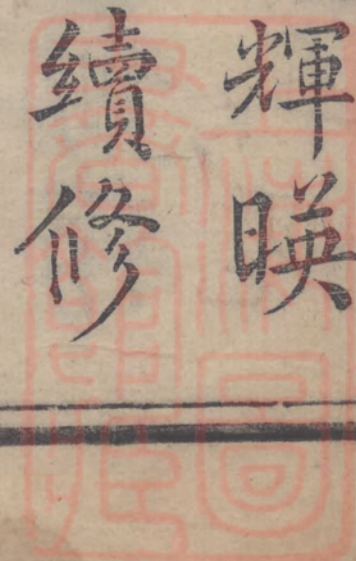 輝暎
續修